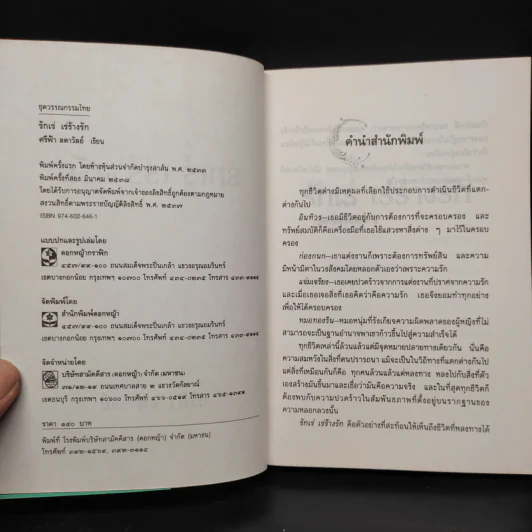 ชุดวรรณกรรมไทย
รักเร่ เร่ร้างรัก
ศรีฟ้า ลดาวัลย์ เขียน
พิมพ์ครั้งแรก โดยห้างหุ้นส่วนจำกัดบำรุงสาส์น พ.ศ. ๒๕๓๓
พิมพ์ครั้งที่สอง มีนาคม ๒๕๓๘
โดยได้รับการอนุญาตจัดพิมพ์จากเจ้าของลิขสิทธิ์ถูกต้องตามกฎหมาย
สงวนสิทธิ์ตามพระราชบัญญัติลิขสิทธิ์ พ.ศ. ๒๕๓๗
ISBN 974-602-646-1
แบบปกและรูปเล่มโดย
ดอกหญ้ากราฟิก
๔๕๗/๙๙-๑๐๐ ถนนสมเด็จพระปิ่นเกล้า แขวงอรุณอมรินทร์
เขตบางกอกน้อย กรุงเทพฯ ๑๐๗๐๐ โทรศัพท์
จัดพิมพ์โดย
สำนักพิมพ์ดอกหญ้า
๔๕๗/๙๙-๑๐๐ ถนนสมเด็จพระปิ่นเกล้า แขวงอรุณอมรินทร์
เขตบางกอกน้อย กรุงเทพฯ ๑๐๗๐๐ โทรศัพท์
จัดจำหน่ายโดย
บริษัทสามัคคีสาร (ดอกหญ้า) จำกัด (มหาชน)
ถนนเทศบาลสาย ๒ แขวงวัดกัลยาณ์
เขตธนบุรี กรุงเทพฯ ๑๐๖๐๐ โทรศัพท์ ๔๖๖-๐๕๑๙ โทรสาร ๔๖๕-๑๓๔๑
ราคา ๑๘๐ บาท
พิมพ์ที่ โรงพิมพ์บริษัทสามัคคีสาร (ดอกหญ้า) จำกัด (มหาชน)
โทรศัพท์ ๓๙๒-๑๕๖๙, ๓๙๒-๓๑๑๔
คำนำสำนักพิมพ์
ทุกชีวิตต่างมีเหตุผลที่เลือกใช้ประกอบการดำเนินชีวิตที่แตก-
ต่างกันไป
อินทิวร–เธอมีชีวิตอยู่กับการต้องการที่จะครอบครอง และ
ทรัพย์สมบัติก็คือเครื่องมือที่เธอใช้แสวงหาสิ่งต่าง ๆ มาไว้ในครอบ
ครอง
ก่องกนก–เขาแต่งงานก็เพราะต้องการทรัพย์สิน และความ
มีหน้ามีตาในวงสังคมโดยหลอกตัวเองว่าเพราะความรัก
แจ่มเจรียง–เธอเคยปวดร้าวจากการแต่งงานที่ปราศจากความรัก
และเมื่อเธอเจอสิ่งที่เธอคิดว่าคือความรัก เธอจึงยอมทำทุกอย่าง
เพื่อให้ได้ครอบครอง
หมอทางธัน–หมอหนุ่มที่รังเกียจความผิดพลาดของผู้หญิงที่ไม่
สามารถจะเป็นฐานอำนาจพาเขาก้าวขึ้นไปสู่ความสำเร็จได้
ทุกชีวิตเหล่านี้ล้วนแล้วแต่มีจุดหมายปลายทางเดียวกัน นั่นคือ
ความสมหวังในสิ่งที่ตนปรารถนา แม้จะเป็นในวิถีทางที่แตกต่างกันไป
แต่สิ่งที่เหมือนกันก็คือ ทุกคนล้วนแล้วแต่หลงทาง หลงไปกับสิ่งที่ตัว
เองสร้างมันขึ้นมาและเชื่อว่ามันคือความจริง และในที่สุดทุกชีวิตก็
ต้องพบกับความปวดร้าวในสัมพันธภาพที่ตั้งอยู่บนรากฐานของ
ความหลอกลวงนั้น
รักเร่ เร่ร้างรัก คือตัวอย่างที่สะท้อนให้เห็นถึงชีวิตที่หลงทางได้